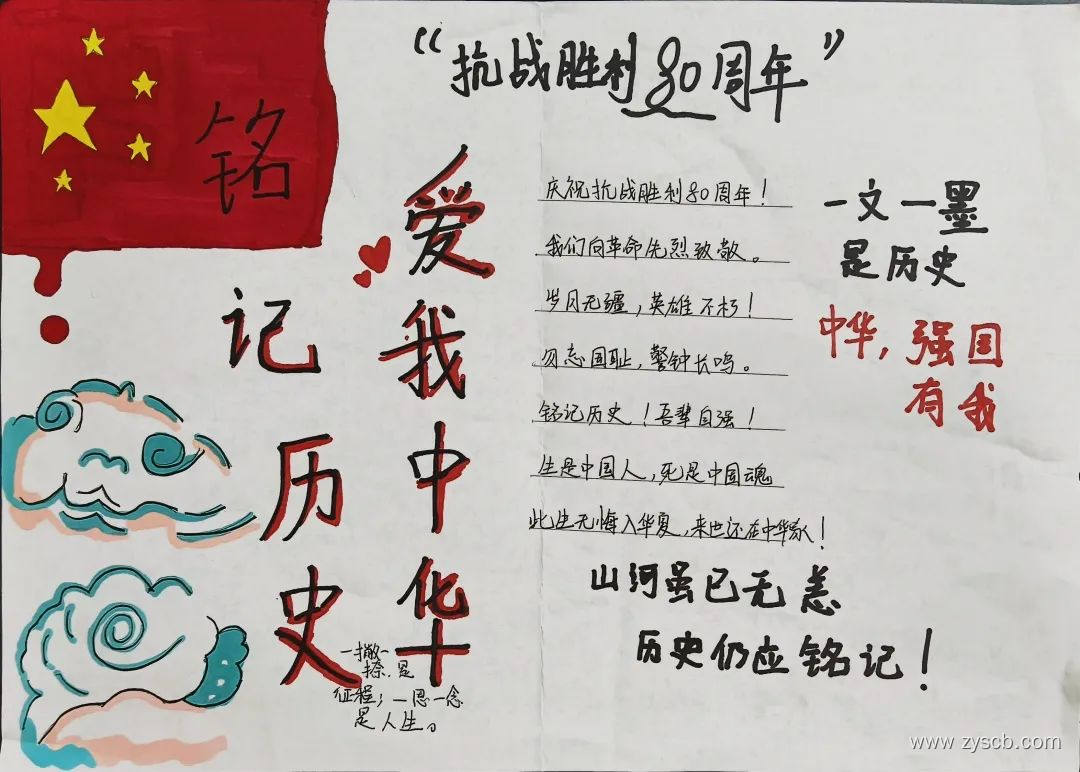 “抗战胜利80周年”
铭
记
历
史
爱
我
中
华
庆祝抗战胜利80周年！
我们向革命先烈致敬。
岁月无疆，英雄不朽！
勿忘国耻，警钟长鸣。
铭记历史！吾辈自强！
生是中国人，死是中国魂
此生无悔入华夏，来世还在中华家！
一文一墨
是历史
中华，强国
有我
山河虽已无恙
历史仍应铭记！
一撇一
捺，是
征程；一思一念
是人生。
www.zyscb.com